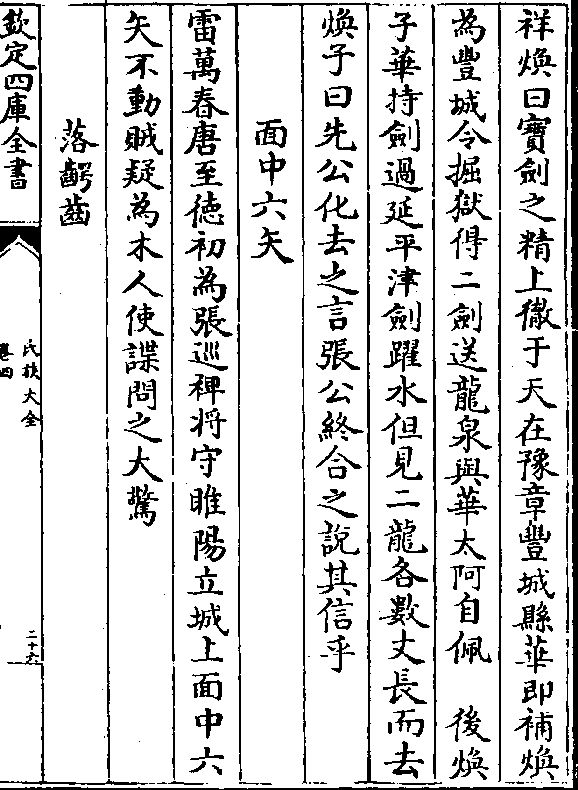 祥煥曰寶劍之精上徹于天在豫章豐城縣華即補煥
為豐城令掘獄得二劍送龍泉與華太阿自佩　後煥
子華持劍過延平津劍躍水但見二龍各數丈長而去
煥子曰先公化去之言張公終合之說其信乎
面中六矢
雷萬春唐至德初為張巡裨将守睢陽立城上面中六
矢不動賊疑為木人使諜問之大驚
落齶齒
欽定四庫全書
氏族大全
卷四
二十六